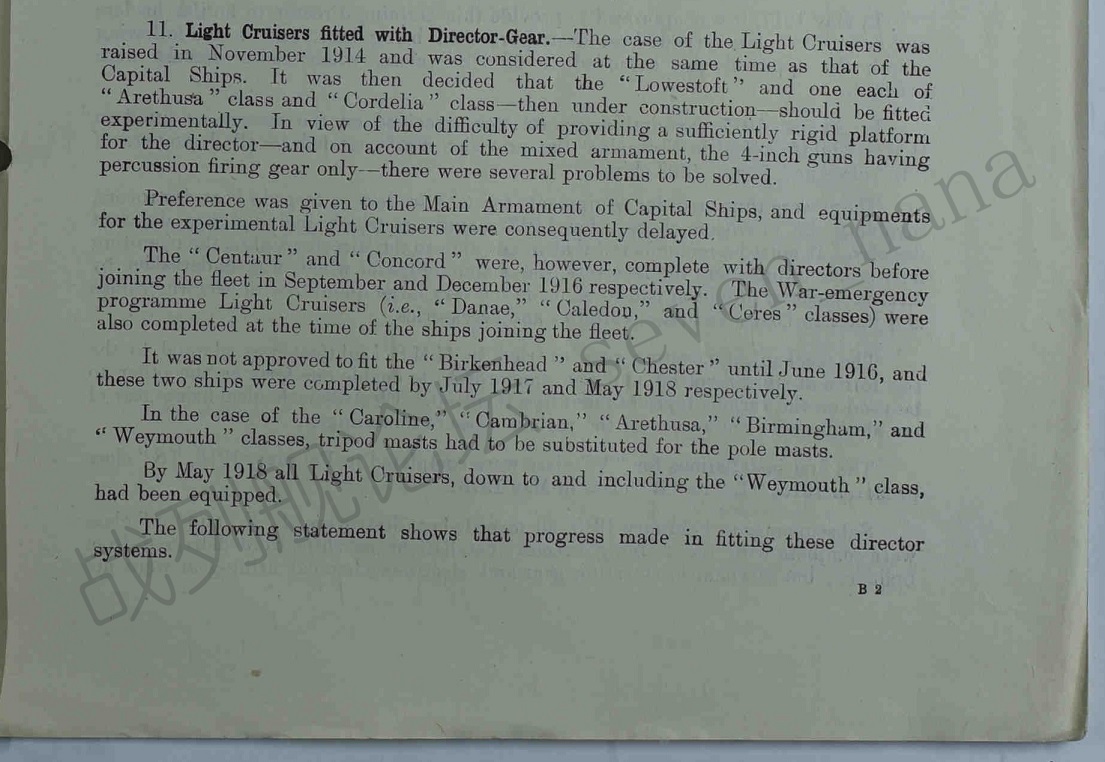 11. Light Cruisers fitted with Director-Gear.—The case of the Light Cruisers was
raised in November 1914 and was considered at the same time as that of the
Capital Ships. It was then decided that the “Lowestoft” and one each of
“Arethusa” class and “Cordelia” class—then under construction—should be fitted
experimentally. In view of the difficulty of providing a sufficiently rigid platform
for the director—and on account of the mixed armament, the 4-inch guns having
percussion firing gear only—there were several problems to be solved.
Preference was given to the Main Armament of Capital Ships, and equipments
for the experimental Light Cruisers were consequently delayed.
The “Centaur” and “Concord” were, however, complete with directors before
joining the fleet in September and December 1916 respectively. The War-emergency
programme Light Cruisers (i.e., “Danae,” “Caledon,” and “Ceres” classes) were
also completed at the time of the ships joining the fleet.
It was not approved to fit the “Birkenhead” and “Chester” until June 1916, and
these two ships were completed by July 1917 and May 1918 respectively.
In the case of the “Caroline,” “Cambrian,” “Arethusa,” “Birmingham,” and
“Weymouth” classes, tripod masts had to be substituted for the pole masts.
By May 1918 all Light Cruisers, down to and including the “Weymouth” class,
had been equipped.
The following statement shows that progress made in fitting these director
systems.
B 2
战列舰论坛 seven_nana